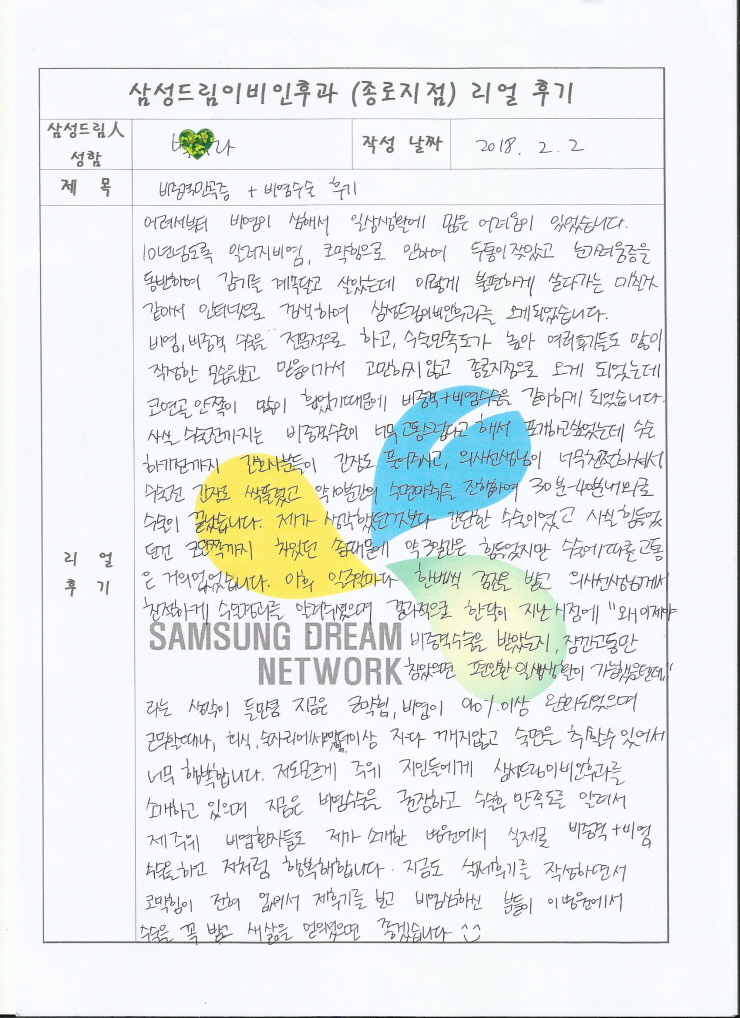 삼성드림이비인후과 (종로지점) 리얼 후기
삼성드림人
성함
라
작성 날짜
2018. 2. 2
제 목
비중격만곡증 + 비염수술 후기
리 얼
후 기
어려서부터 비염이 심해서 일상생활에 많은 어려움이 있었습니다.
10년넘도록 알러지비염, 코막힘으로 인하여 두통이잦았고 눈가려움증을
동반하며 감기를 계속달고 살았는데 이렇게 불편하게 살다가는 미칠것
같아서 인터넷으로 검색하여 삼성드림이비인후과를 오게되었습니다.
비염, 비중격 수술을 전문적으로 하고, 수술만족도가 높아 여러후기들도 많이
작성한 모습보고 믿음이가서 고민하지않고 종로지점으로 오게 되었는데
코연골 안쪽이 많이 휘었기때문에 비중격+비염수술을 같이하게 되었습니다.
사실 수술전까지는 비중격수술이 너무고통스럽다고 해서 포기하고싶었는데 수술
하기전까지 간호사분들이 긴장도 풀어주시고, 의사선생님이 너무친절하셔서
수술전 긴장도 싹풀렸고 약10분간의 수면마취를 진행하여 30분-40분내외로
수술이 끝났습니다. 제가 생각했던것보다 간단한 수술이였고 사실 힘들었
던건 코안쪽까지 차있던 솜때문에 약 3일간은 힘들었지만 수술에따른고통
은 거의없었습니다. 이후 일주일마다 한번씩 검진을 받고 의사선생님께서
친절하게 수술경과를 알려주셨으며 결과적으로 한달이 지난 시점에 "왜 이제야
SAMSUNG DREAM
NETWORK
비중격수술을 받았는지, 잠깐고통만
참았으면 편안한 일상생활이 가능했을텐데."
라는 생각이 들만큼 지금은 코막힘, 비염이 90% 이상 완화되었으며
근무할때나, 회식, 술자리에서 더이상 자다 깨지않고 숙면을 취할수 있어서
너무 행복합니다. 저도모르게 주위 지인들에게 삼성드림이비인후과를
소개하고 있으며 지금은 비염수술을 권장하고 수술후 만족도를 알려서
제주위 비염환자들도 제가 소개한 병원에서 실제로 비중격+비염
수술을하고 저처럼 행복해합니다. 지금도 실제후기를 작성하면서
코막힘이 전혀 없어서 제후기를 보고 비염심하신 분들이 이병원에서
수술을 꼭 받고 새삶을 얻으셨으면 좋겠습니다